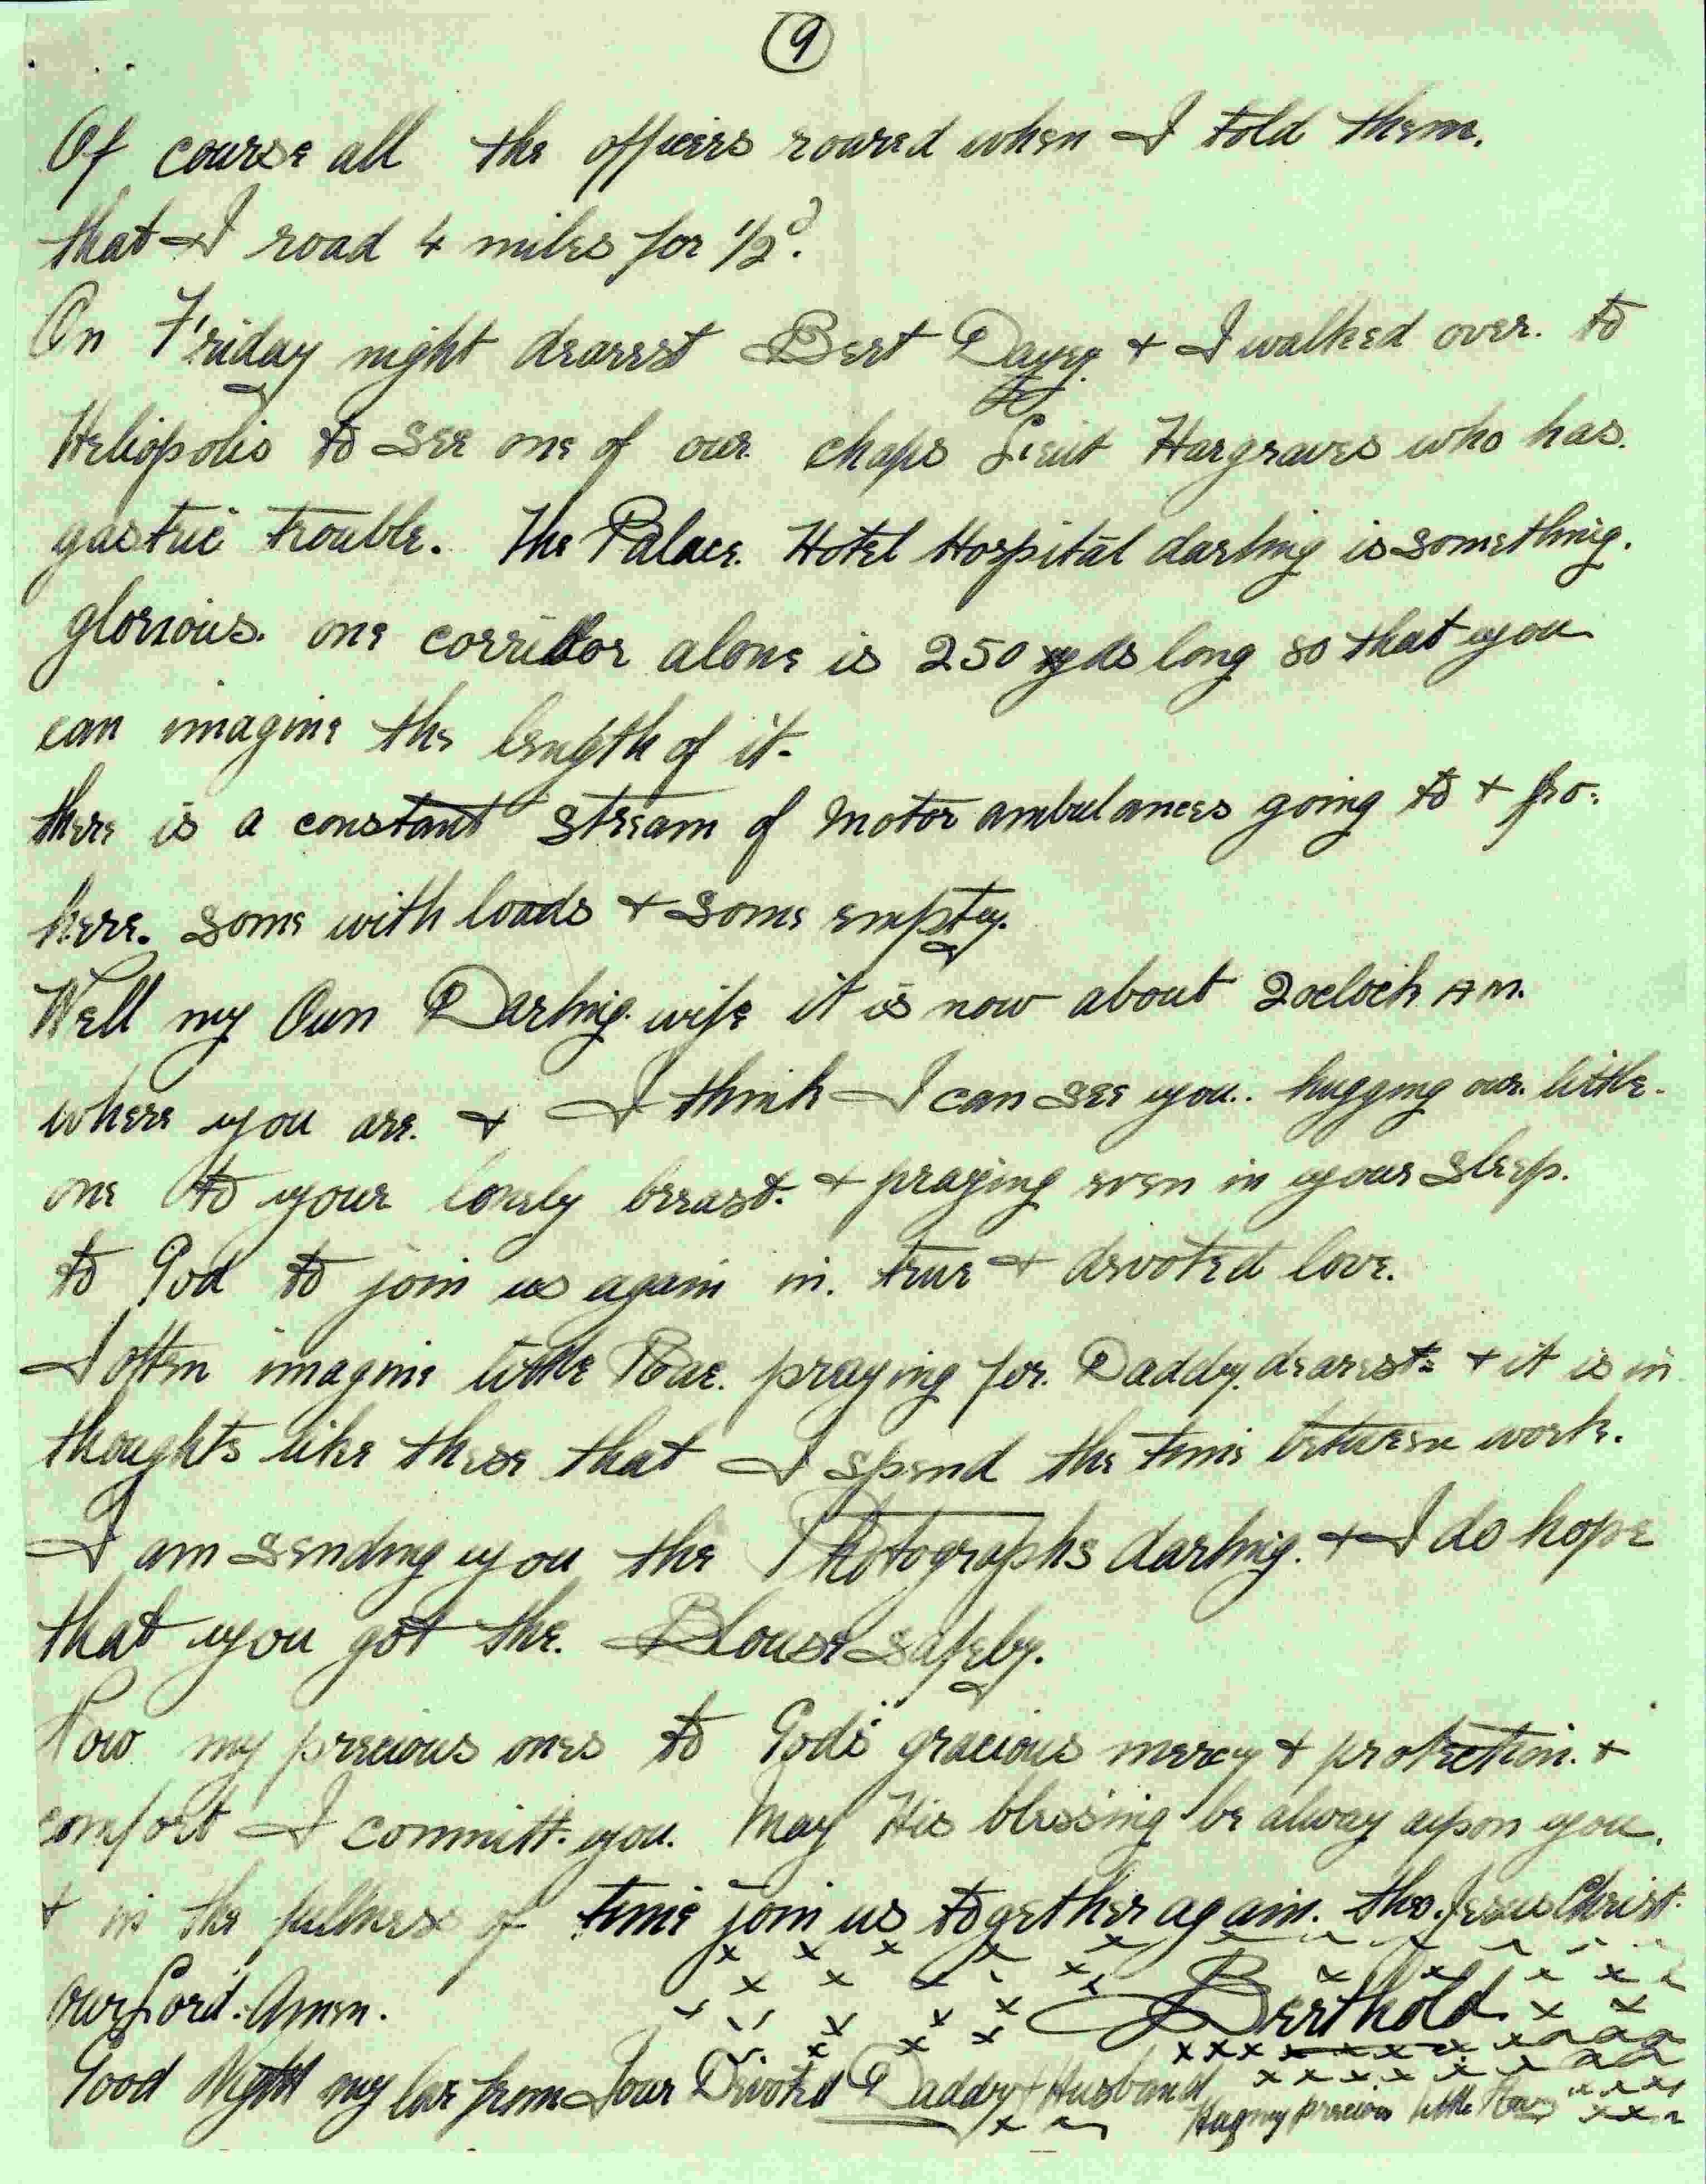 9
Of course all the officers roared when I told them.
that I road 4 miles for 1/2d.
On Friday night dearest Bert Davey & I walked over. to
Heliopolis to see one of our chaps Lieut Hargraves who has.
gastric trouble. The Palace. Hotel Hospital darling is something.
glorious. one corridor alone is 250 yds long so that you
can imagine the length of it.
there is a constant stream of motor ambulances going to & fro.
here. some with loads & some empty.
Well my Own Darling. wife it is now about 2oclock AM.
where you are. & I think I can see you.. hugging our. little.
one to your lonely breast. & praying even in your sleep.
to God to join us again in. true & devoted love.
I often imagine little praying for. Daddy. dearest. & it is in
thoughts like these that I spend the time between work.
I am sending you the Photographs darling. & I do hope
that you got the. Blouse safely.
Now my precious ones to God's gracious mercy & protection. &
comfort I committ. you. May His blessing be alway upon you.
& in the fullness of time join us together again. thro. Jesus Christ.
our Lord. Amen.
Berthold
Good Night my love from Your Devoted Daddy & Husband
Hug my precious little